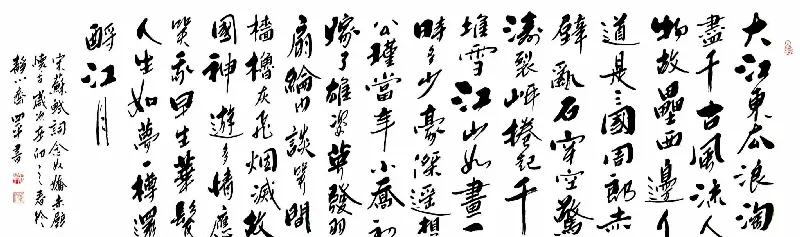 大江東去浪淘
盡千古風流人
物故壘西邊人
道是三國周郎赤
壁亂石穿空驚
濤裂岸捲起千
堆雪江山如畫一
時多少豪傑遥想
公瑾當年小喬初
嫁了雄姿英發羽
扇綸巾談笑間
檣櫓灰飛烟滅故
國神遊多情應
笑我早生華髮
人生如夢一樽還
酹江月
宋蘇軾詞念奴嬌赤壁
懷古歲次
書